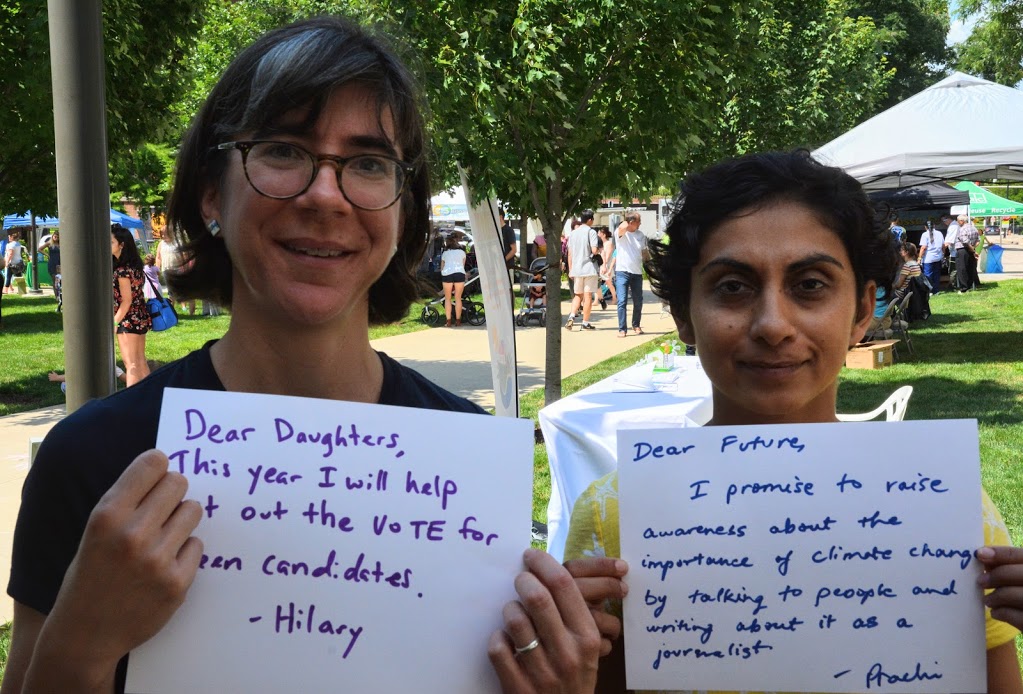 Dear Daughters,
This year I will help
t out the VOTE for
een candidates.
- Hilary
Dear Future,
I promise to raise
awareness about the
importance of climate chang
by talking to people and
writing about it as a
journalist
- Prachi
Recycle